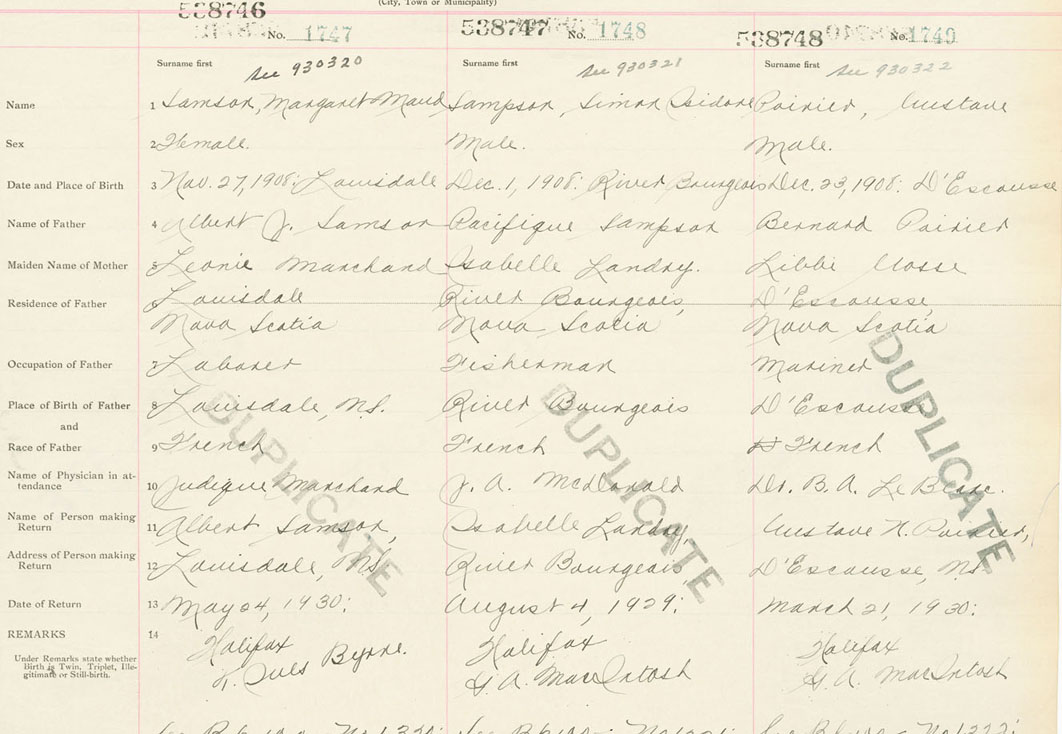 (City, Town or Municipality)
538746 No. 1747 538747 No. 1748 538748 No. 1749
Surname first see 930320 Surname first see 930321 Surname first see 930322
Name 1 Samson, Margaret Maud Sampson, Simon Isidore Poirier, Gustave
Sex 2 Female. Male. Male.
Date and Place of Birth 3 Nov. 27, 1908: Louisdale Dec. 1, 1908: River Bourgeois Dec. 23, 1908: D'Escousse
Name of Father 4 Albert J. Samson Pacifique Sampson Bernard Poirier
Maiden Name of Mother 5 Leonie Marchand Isabelle Landry. Libbi
Residence of Father Louisdale River Bourgeois, D'Escousse,
Nova Scotia Nova Scotia Nova Scotia
Occupation of Father 7 Laborer Fisherman Mariner
Place of Birth of Father 8 Louisdale, N.S. River Bourgeois D'Escousse
and
Race of Father 9 French French French
Name of Physician in at-
tendance 10 Judique Marchand J. A. McDonald Dr. B. A. LeBlanc.
Name of Person making
Return 11 Albert Samson, Isabelle Landry Gustave N. Poirier,
Address of Person making
Return 12 Louisdale, NS River Bourgeois, D'Escousse, NS
Date of Return 13 May 24, 1930: August 4, 1929: March 21, 1930:
REMARKS 14 Halifax Halifax Halifax
Under Remarks state whether
Birth is Twin, Triplet, Ille-
gitimate or Still-birth.
Byrne. G. A. MacIntosh G. A. MacIntosh
DUPLICATE DUPLICATE DUPLICATE